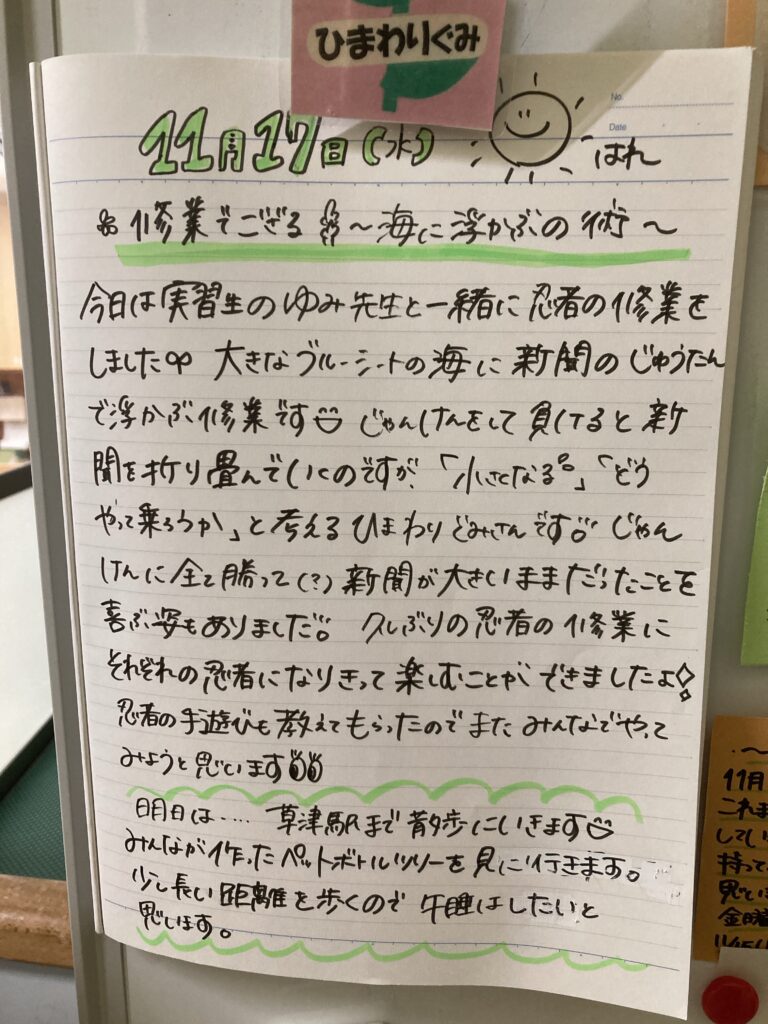 ひまわりぐみ
No.
Date
11月17日(水)
はれ
修業でござる ～海に浮かぶの術～
今日は実習生のゆみ先生と一緒に忍者の修業を
しました 大きなブルーシートの海に新聞のじゅうたん
で浮かぶ修業です じゃんけんをして負けると新
聞を折り畳んでいくのですが、「小さくなる。」「どう
やって乗ろうか」と考えるひまわりぐみさんです。じゃん
けんに全て勝って(?)新聞が大きいままだったことを
喜ぶ姿もありました。 久しぶりの忍者の修業に
それぞれの忍者になりきって楽しむことができましたよ
忍者の手遊びも教えてもらったのでまたみんなでやって
みようと思います
明日は…… 草津駅まで散歩にいきます
みんなが作ったペットボトルツリーを見に行きます。
少し長い距離を歩くので午睡はしたいと
思います。
11月
これま
してい
持って
思い
金曜